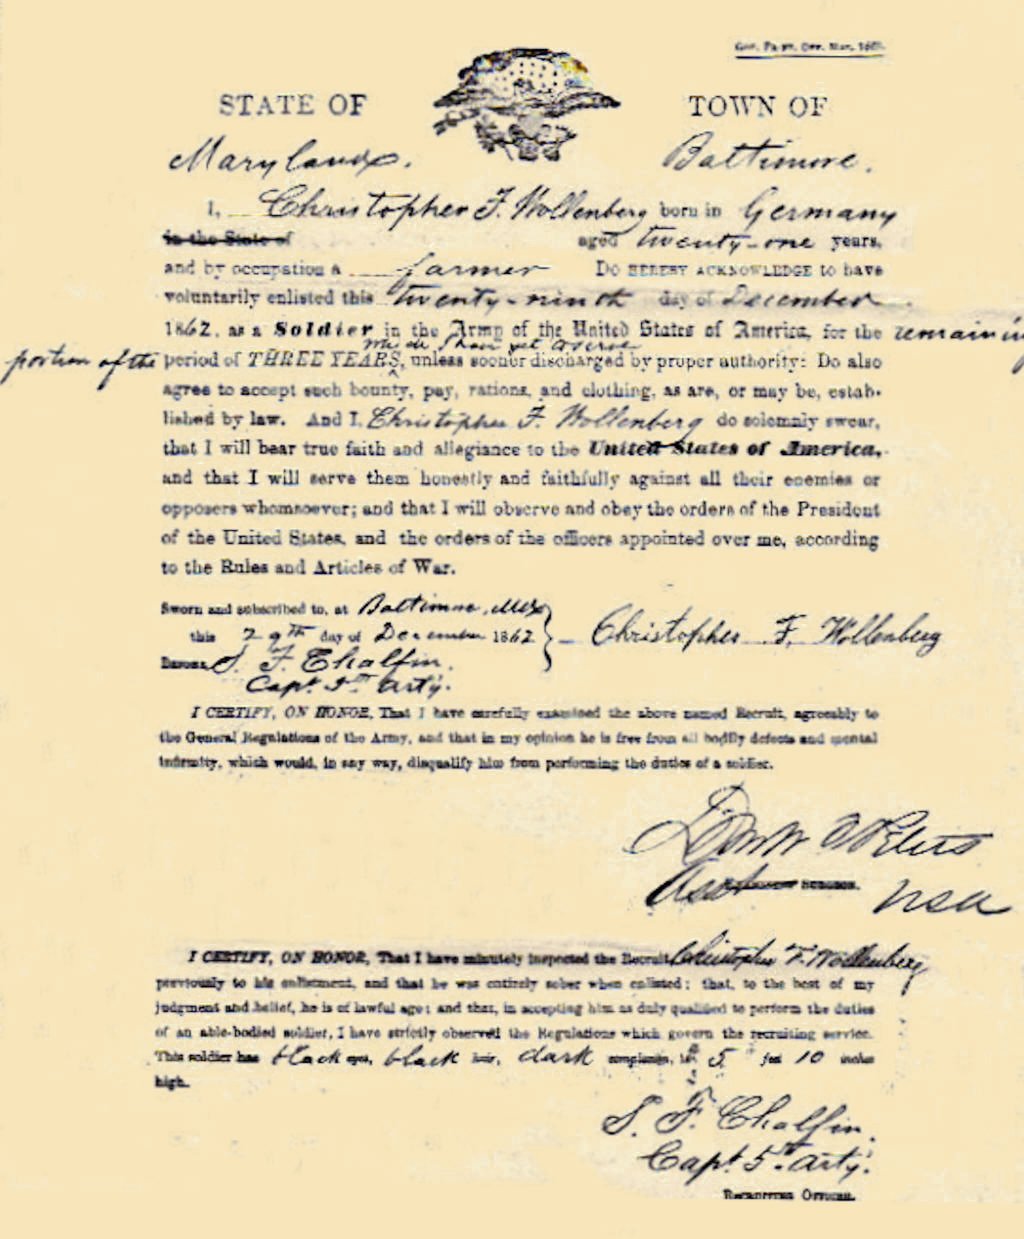 STATE OF TOWN OF
Maryland. Baltimore.
I, Christopher F. Wollenberg born in Germany
in the State of aged twenty-one years,
and by occupation a farmer Do HEREBY ACKNOWLEDGE to have
voluntarily enlisted this twenty-ninth day of December
1862, as a Soldier in the Army of the United States of America, for the remaining
portion of the period of THREE YEARS, unless sooner discharged by proper authority: Do also
agree to accept such bounty, pay, rations, and clothing, as are, or may be, estab-
lished by law. And I, Christopher F. Wollenberg do solemnly swear,
that I will bear true faith and allegiance to the United States of America,
and that I will serve them honestly and faithfully against all their enemies or
opposers whomsoever; and that I will observe and obey the orders of the President
of the United States, and the orders of the officers appointed over me, according
to the Rules and Articles of War.
Sworn and subscribed to, at Baltimore, Md
this 29th day of December 1862 Christopher F. Wollenberg
BEFORE S. F. Chalfin.
Capt. 5th Arty.
I CERTIFY, ON HONOR, That I have carefully examined the above named Recruit, agreeably to
the General Regulations of the Army, and that in my opinion he is free from all bodily defects and mental
infirmity, which would, in any way, disqualify him from performing the duties of a soldier.
Asst SURGEON. USA
I CERTIFY, ON HONOR, That I have minutely inspected the Recruit Christopher F. Wollenberg
previously to his enlistment, and that he was entirely sober when enlisted; that, to the best of my
judgment and belief, he is of lawful age; and that, in accepting him as duly qualified to perform the duties
of an able-bodied soldier, I have strictly observed the Regulations which govern the recruiting service.
This soldier has black eyes, black hair, dark complexion, is 5 feet 10 inches
high.
S. F. Chalfin.
Capt 5th Arty.
RECRUITING OFFICER.